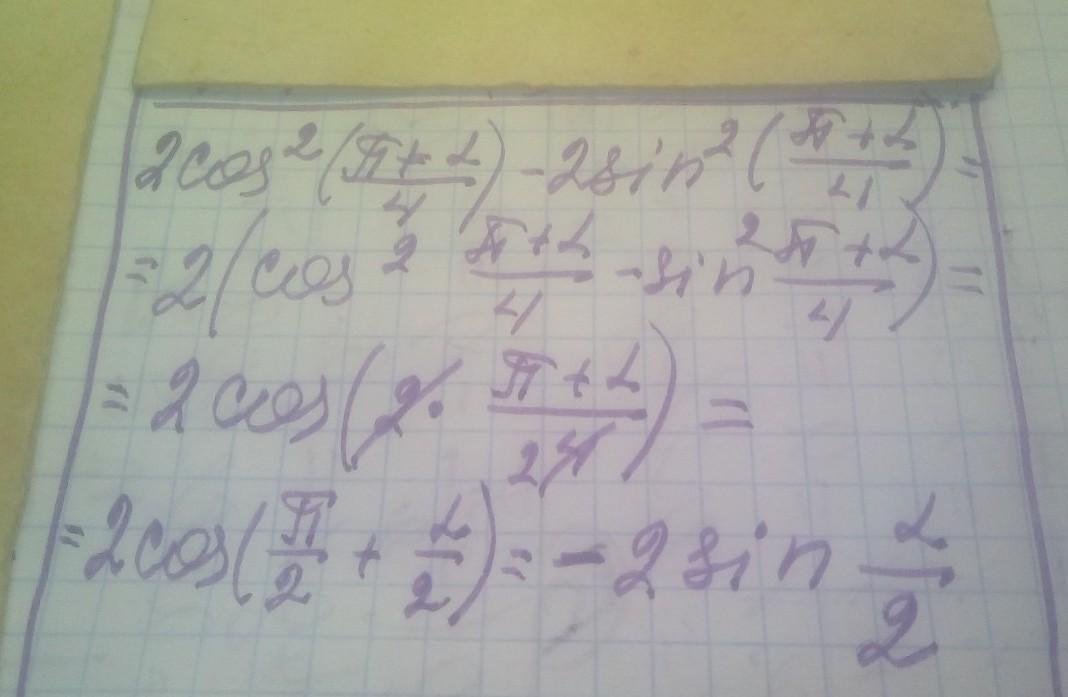 2cos²((π+α)/4) - 2sin²((π+α)/4) =
= 2(cos² (π+α)/4 - sin² (π+α)/4) =
= 2cos(2· (π+α)/(2 4)) =
= 2cos(π/2 + α/2) = -2 sin α/2